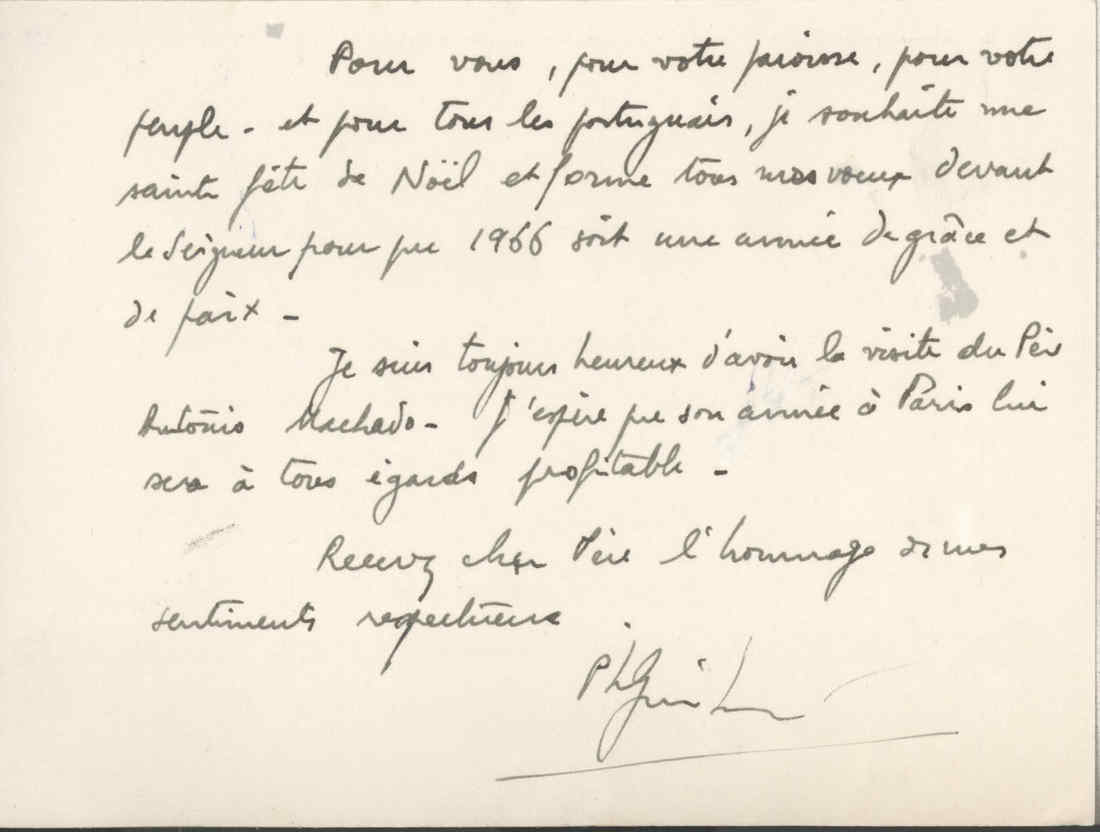 Pour vous, pour votre paroisse, pour votre
peuple - et pour tous les portugais, je souhaite une
sainte fête de Noël et forme tous mes voeux devant
le Seigneur pour que 1966 soit une année de grâce et
de paix -
Je suis toujours heureux d'avoir la visite du Père
António Machado - J'espère que son année à Paris lui
sera à tous égards profitable -
Recevez cher Père l'hommage de mes
sentiments respectueux.